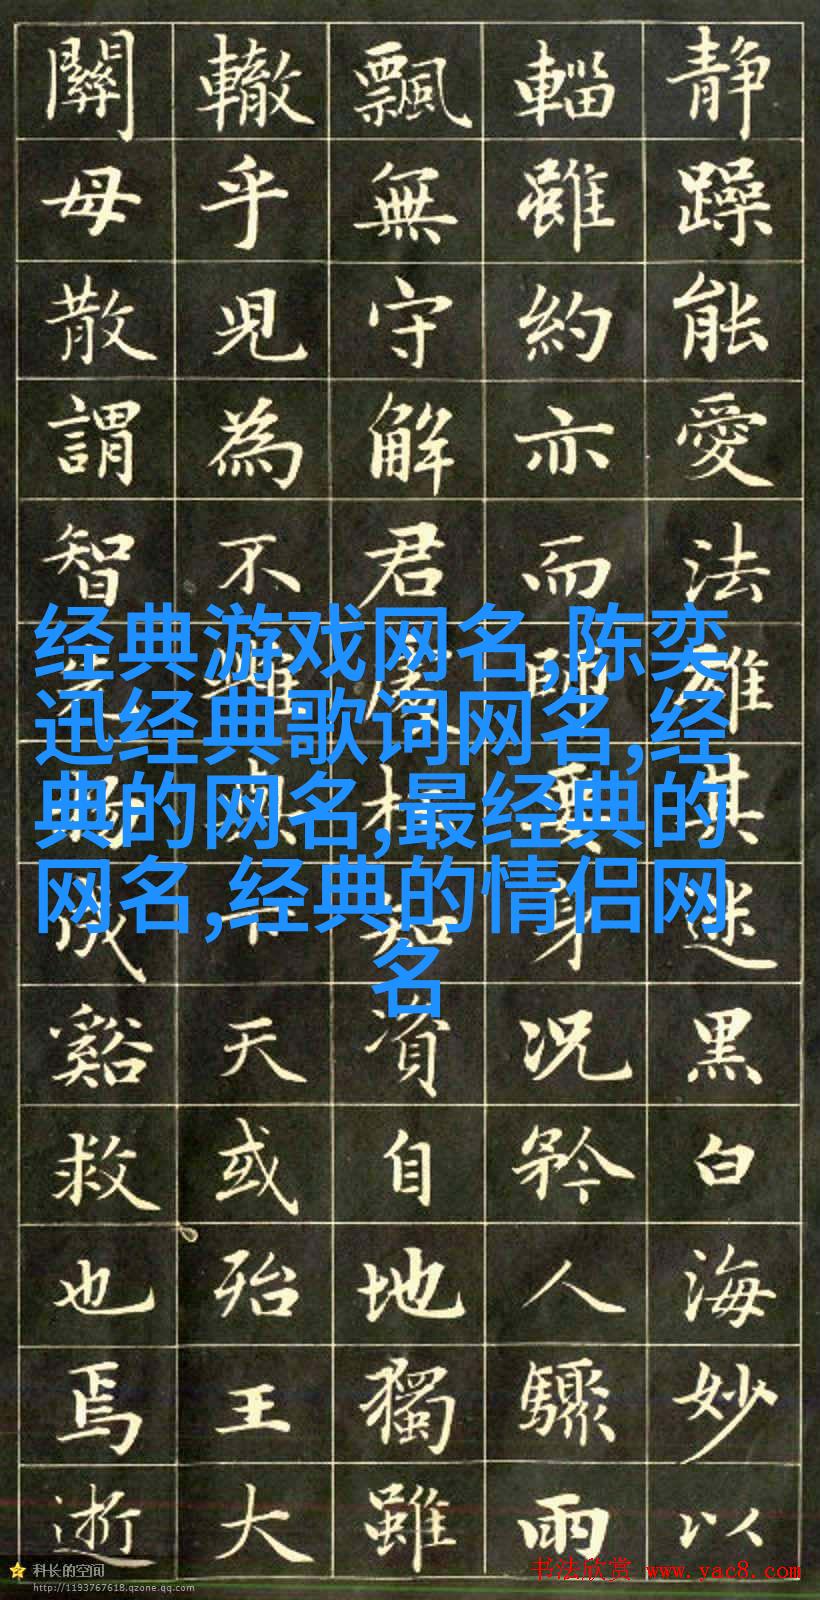 静躁能愛法其迷黑白海妙以
輜雖約亦而師身況矜人驟雨
飄無守解君知資自地獨雖
轍乎兒為不天或殆王大
關母散謂智成谿救也焉逝
经典游戏网名,陈奕
迅经典歌词网名,经
典的网名,最经典的
网名,经典的情侣网
名
科长的空间
http://1193767618.qzone.qq.com
书法欣赏 www.yac8.com